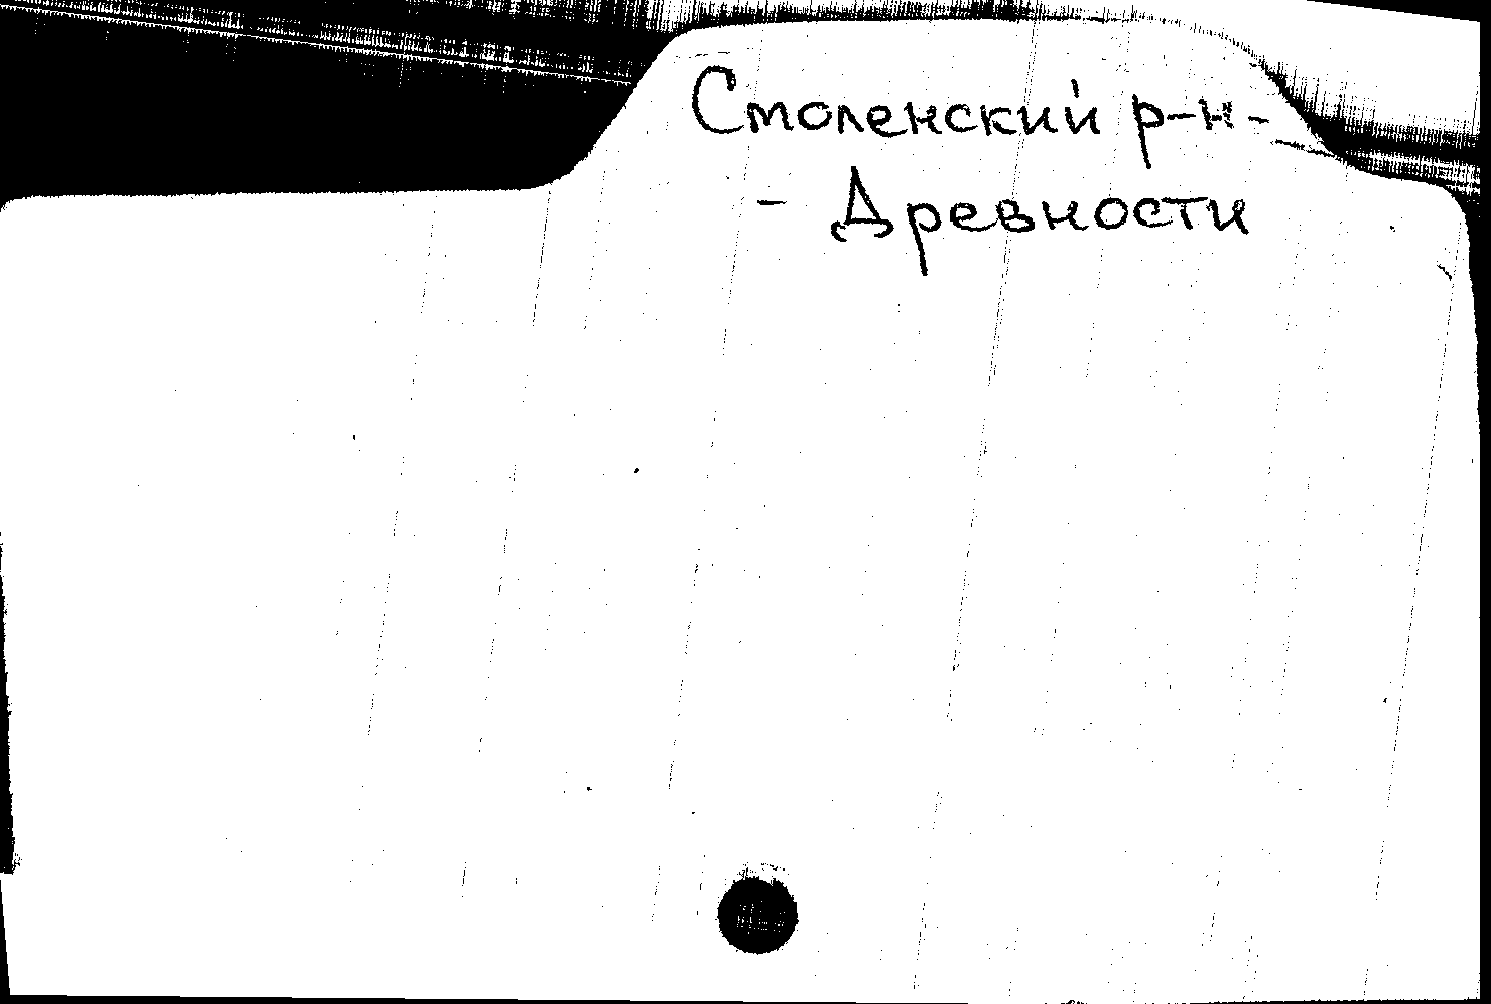 Смоленский р-н-
- Древности